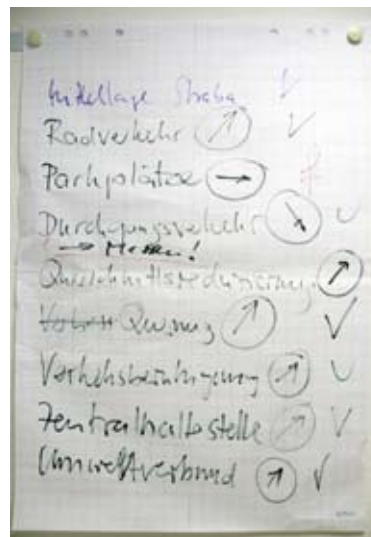 Mittellage Straba
Radverkehr
Parkplätze
Durchgangsverkehr
→ Messen!
Querschnittsreduzierung
Querung
Verkehrsberuhigung
Zentralhaltestelle
Umweltverbund